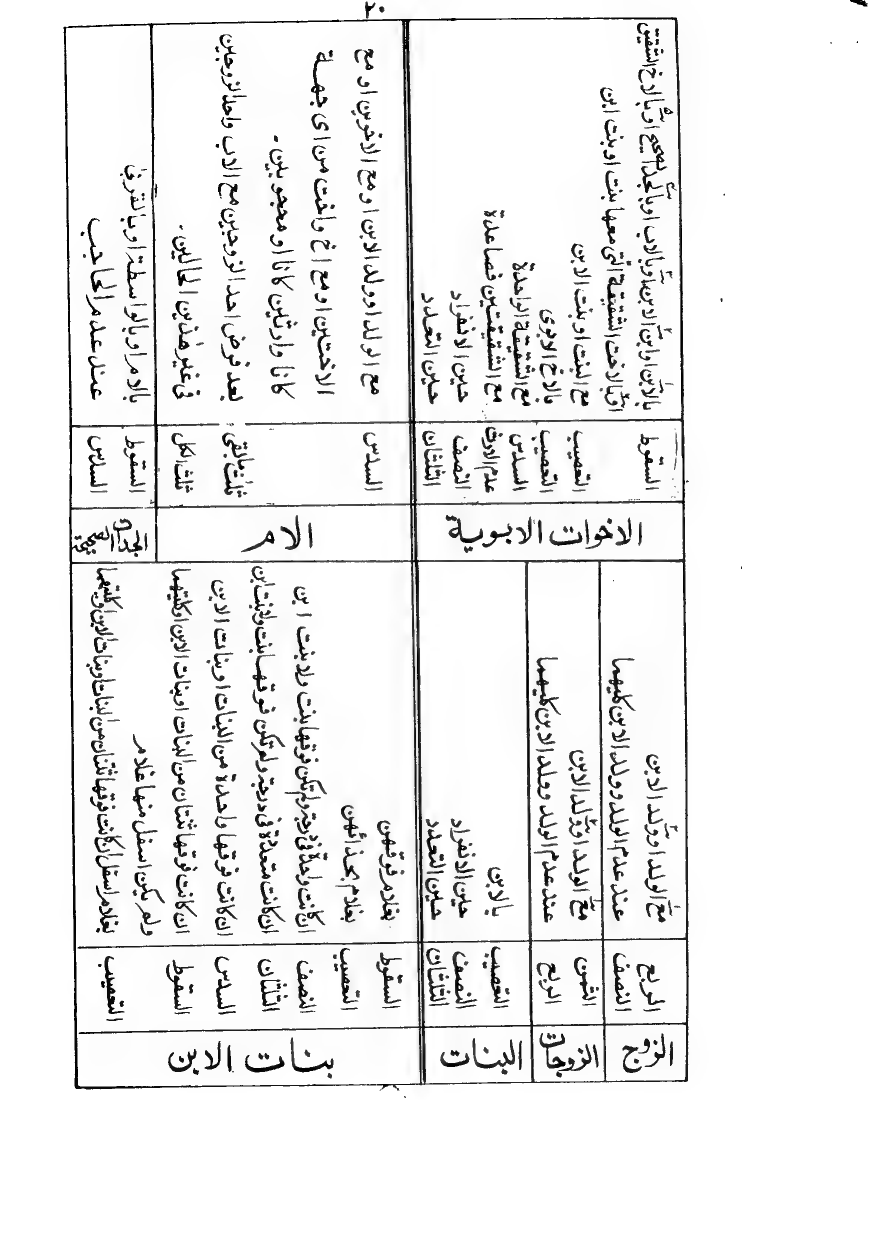 الزوج
الربع
مع الولد او ولد الابن
النصف
عند عدم الولد وولد الابن كليهما
الزوجات
الثمن
مع الولد او ولد الابن
الربع
عند عدم الولد وولد الابن كليهما
البنات
التعصيب
بالابن
النصف
حين الانفراد
الثلثان
حين التعدد
بنات الابن
السقوط
بغلام فوقهن
التعصيب
بغلام بحذائهن
النصف
ان كانت واحدة فى درجة ولم تكن فوقها بنت ولا بنت ابن
الثلثان
ان كانت متعددة فى درجة ولم تكن فوقها بنت ولا بنت ابن
السدس
ان كانت فوقها واحدة من البنات او بنات الابن
السقوط
ان كانت فوقها ثنتان من البنات او بنات الابن او كليتهما
ولم يكن اسفل منها غلام
التعصيب
بغلام اسفل ان كانت فوقها ثنتان من البنات او بنات الابن او كليتهما
الاخوات الابوية
السقوط
بالابن او ابن الابن او بالاب او بالجد الصحيح او بالاخ الشقيق
او بالاخت الشقيقة التى معها بنت او بنت ابن
التعصيب
مع البنت او بنت الابن
التعصيب
بالاخ الابوى
السدس
مع الشقيقة الواحدة
عدم الارث
مع الشقيقتين فصاعدة
النصف
حين الانفراد
الثلثان
حين التعدد
الام
السدس
مع الولد او ولد الابن او مع الاخوين او مع
الاختين او مع اخ واخت من اى جهة
كانا وارثين كانا او محجوبين۔
ثلث مابقى
بعد فرض احد الزوجين مع الاب واحد الزوجين
ثلث الكل
فى غير هذين الحالين۔
الجدات الصحيحة
السقوط
بالام او بالواسطة او بالقربى
السدس
عند عدم الحاجب